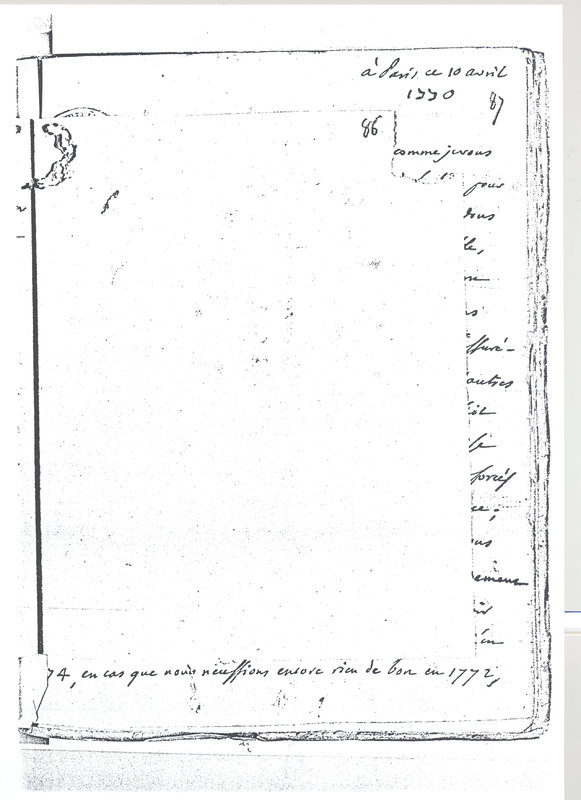 à Paris, ce 10 avril
1770
87
86
comme je vous
pour
vous
le,
ne
ssuré-
autres
oit
forcés
ce;
us
emens
74, en cas que nous n'eussions encore rien de bon en 1772,